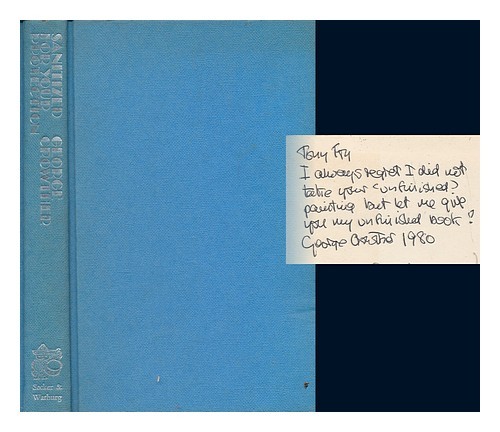 SANITIZED
FOR YOUR
PROTECTION
GEORGE
CROWTHER
Secker &
Warburg
Tony Fry
I always regret I did not
take your "unfinished?
painting but let me give
you my unfinished book!
George Crowther 1980